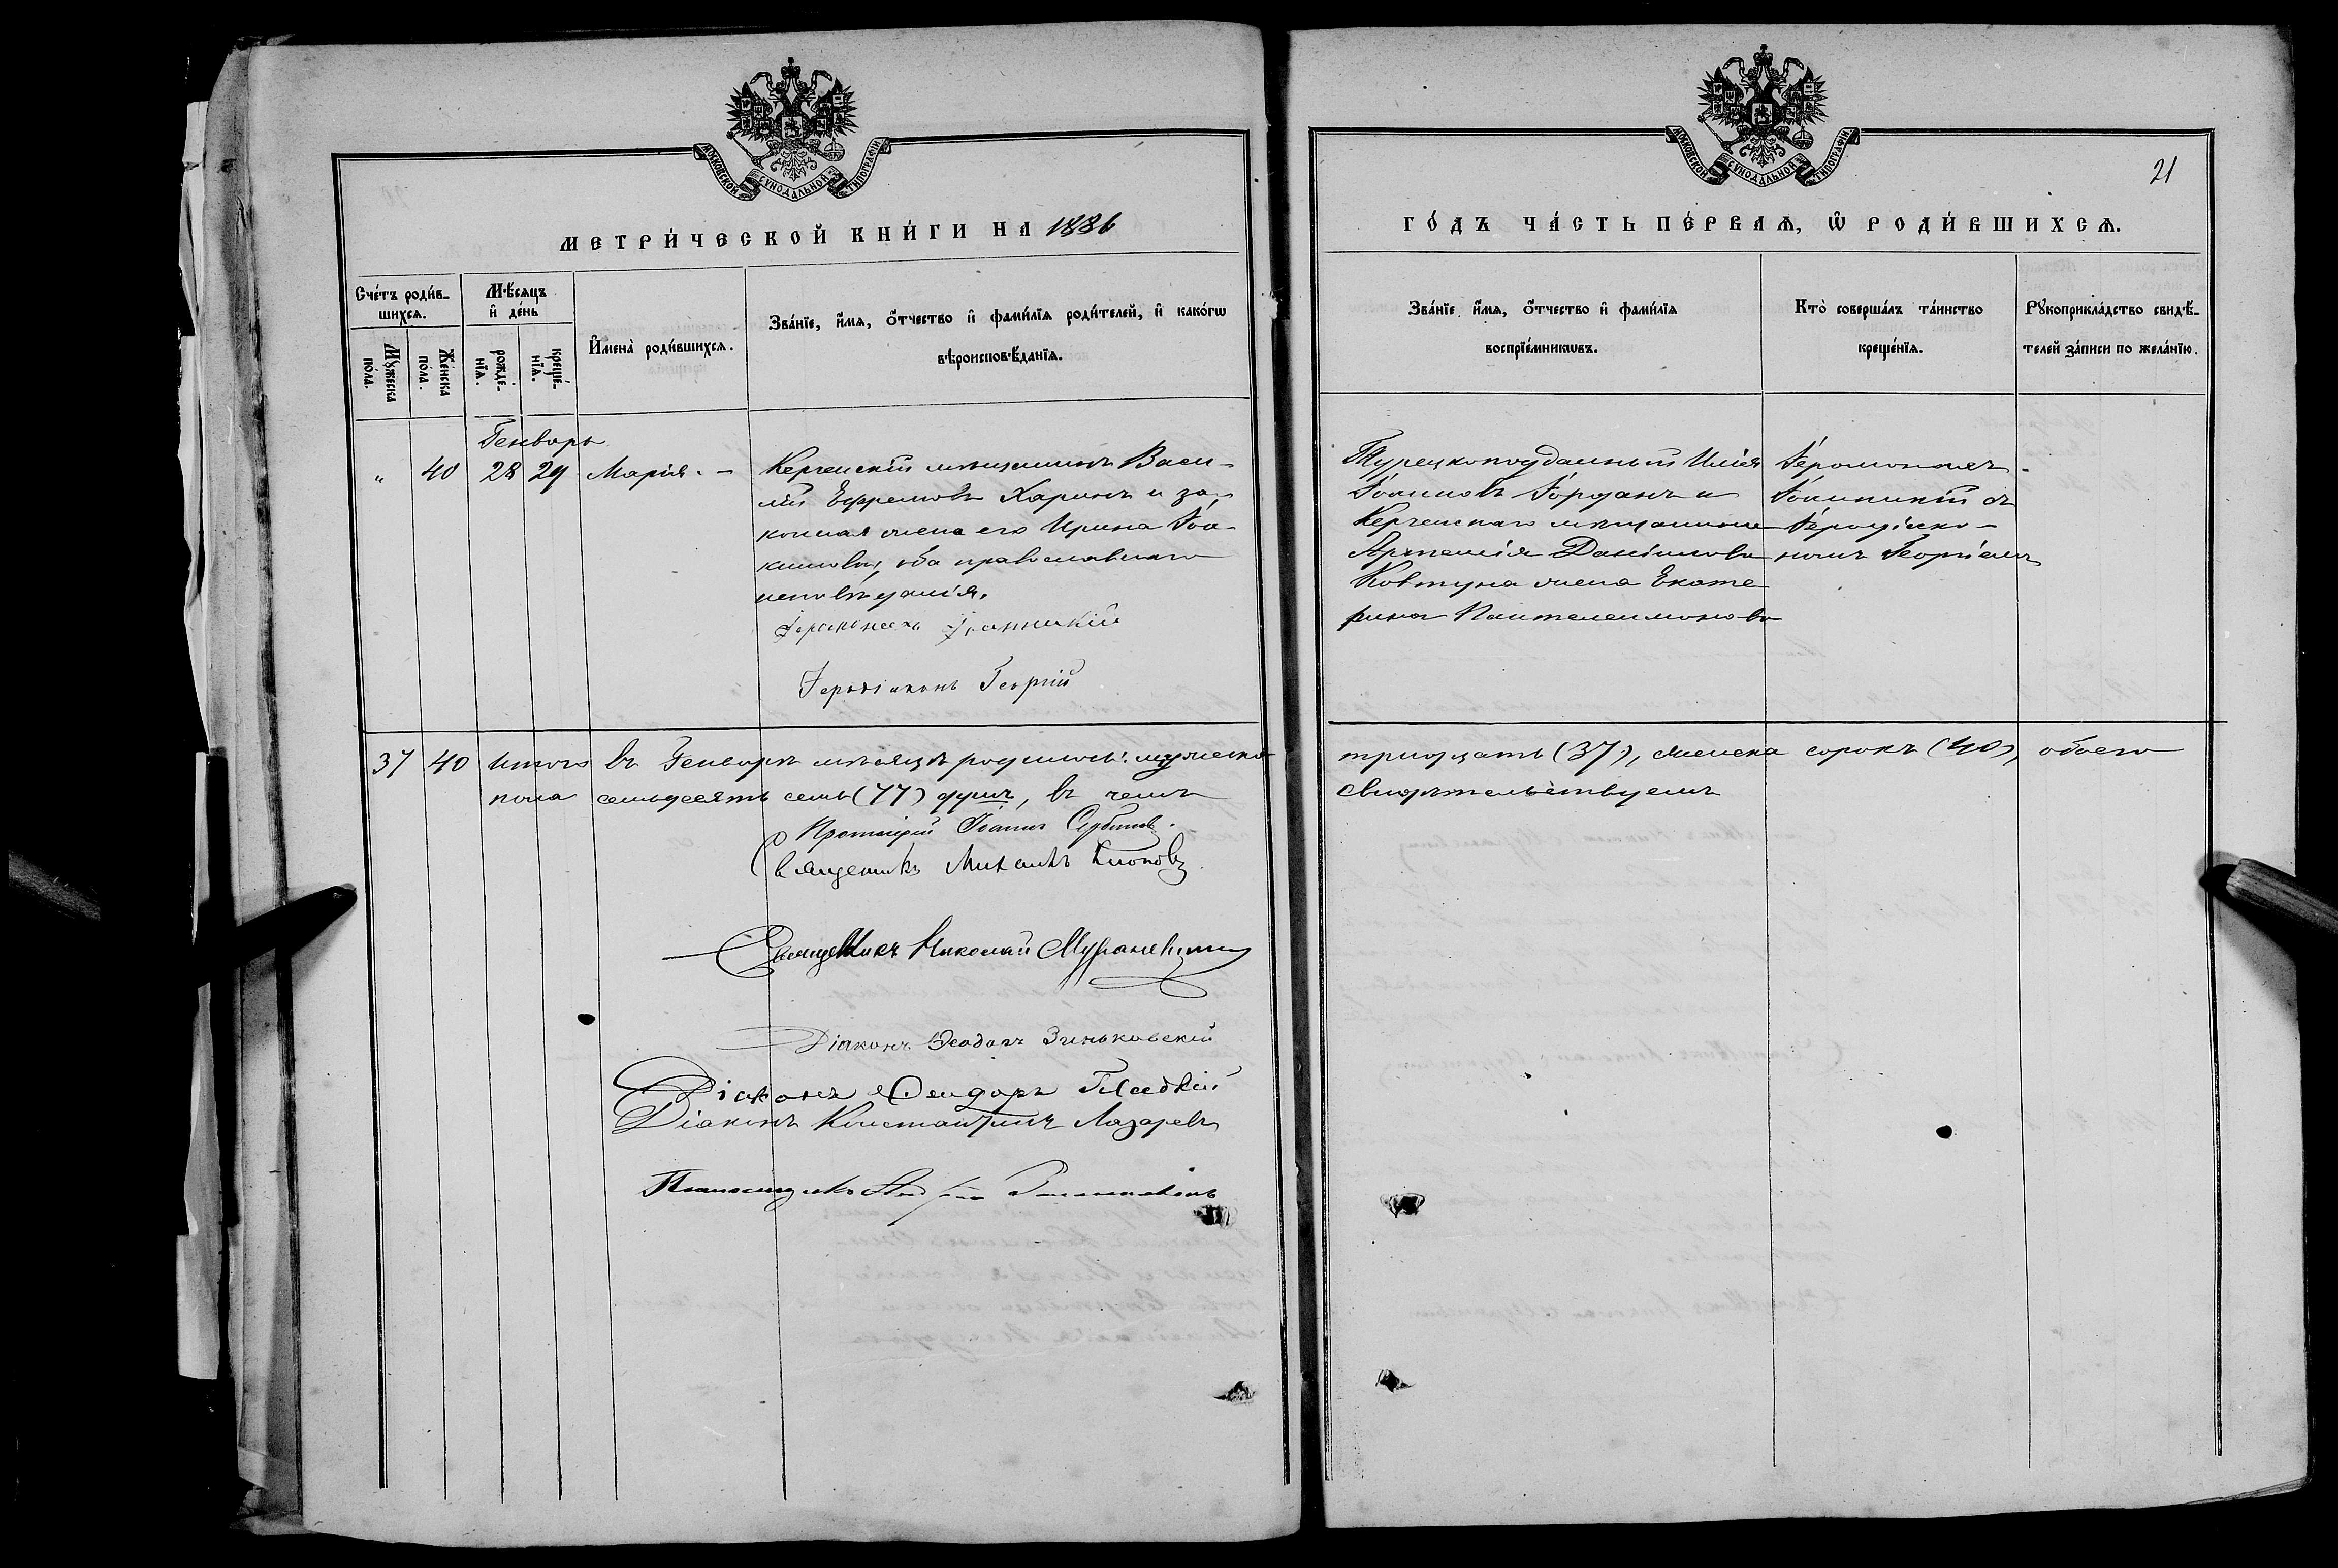 МОСКОВСКОЙ СѴНОДАЛЬНОЙ ТИПОГРАФІИ
МЕТРИ́ЧЕСКОЙ КНИ́ГИ НА 1886
Сче́тъ роди́в-
шихсѧ.
Мꙋ́жеска
по́ла.
Же́нска
по́ла.
Мѣ́сѧцъ
и҆ де́нь
рожде́-
нїѧ.
креще́-
нїѧ.
И҆мена̀ роди́вшихсѧ.
Зва́нїе, и҆́мѧ, ѻ҆́тчество и҆ фами́лїѧ роди́телей, и҆ како́гѡ
вѣроисповѣ́данїѧ.
Генварь
" 40 28 29 Марія. –
Керченскій мѣщанинъ Васи-
лій Ефремовъ Харинъ и за-
конная жена его Ирина Іоа-
кимова, оба православнаго
исповѣданія.
Іеромонахъ Іоанникій
Іеродіаконъ Георгій
37 40 Итого въ Генварѣ мѣсяцѣ родилось: мужеска
пола семьдесятъ семь (77) душъ, въ чемъ
Протоіерей Іоаннъ Сербиновъ.
Священникъ Михаилъ
Священникъ Николай
Діаконъ Ѳеодоръ Зеньковскій
Діаконъ Ѳеодоръ Гладкій
Діаконъ Константинъ Лазаревъ
Псаломщикъ
МОСКОВСКОЙ СѴНОДАЛЬНОЙ ТИПОГРАФІИ
21
ГО́ДЪ ЧА́СТЬ ПЕ́РВАѦ, Ѡ҆ РОДИ́ВШИХСѦ.
Зва́нїе и҆́мѧ, ѻ҆́тчество и҆ фами́лїѧ
воспрїе́мникѡвъ.
Кто̀ соверша́лъ та́инство
креще́нїѧ.
Рꙋкоприкла́дство свидѣ́-
телей за́писи по жела́нїю.
Турецкоподданный Илія
Іоанновъ Іорданъ и
Керченскаго мѣщанина
Артемія Даніилова
Ковтуна жена Екате
рина Пантелеимонова
Іеромонахъ
Іоанникій съ
Іеродіако-
номъ Георгіемъ
тридцать (37), женска сорокъ (40), обоего
свидѣтельствуемъ